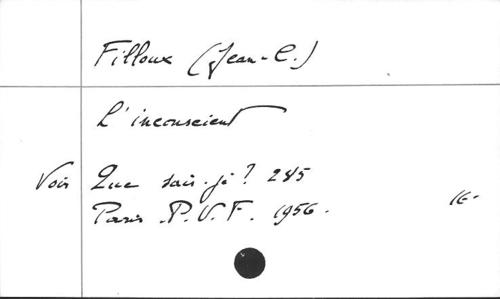 Filloux (Jean-C.)
L'inconscient
Voir Que sais-je? 285
Paris. P.U.F. 1956. 16-